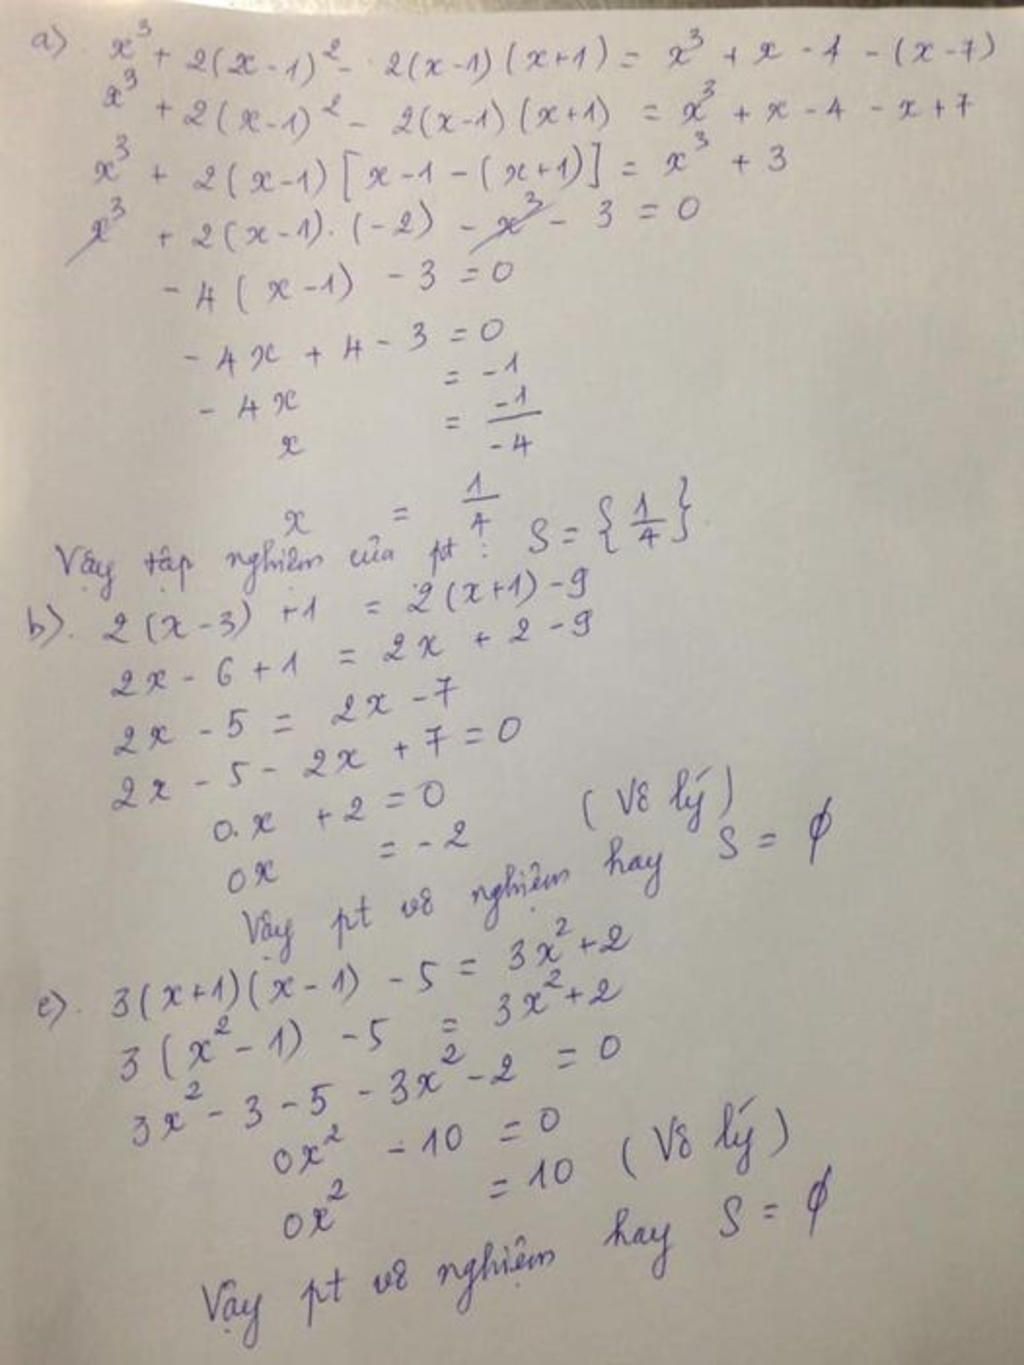 a) x³ + 2(x-1)² - 2(x-1)(x+1) = x³ + x - 4 - (x-7)
x³ + 2(x-1)² - 2(x-1)(x+1) = x³ + x - 4 - x + 7
x³ + 2(x-1)[x-1-(x+1)] = x³ + 3
x³ + 2(x-1).(-2) - x³ - 3 = 0
-4(x-1) - 3 = 0
-4x + 4 - 3 = 0
-4x = -1
x = -1/-4
x = 1/4
Vậy tập nghiệm của pt : S = {1/4}
b). 2(x-3) + 1 = 2(x+1) - 9
2x - 6 + 1 = 2x + 2 - 9
2x - 5 = 2x - 7
2x - 5 - 2x + 7 = 0
0.x + 2 = 0
0x = -2 (Vô lý)
Vậy pt vô nghiệm hay S = ϕ
c). 3(x+1)(x-1) - 5 = 3x² + 2
3(x²-1) - 5 = 3x² + 2
3x² - 3 - 5 - 3x² - 2 = 0
0x² - 10 = 0
0x² = 10 (Vô lý)
Vậy pt vô nghiệm hay S = ϕ